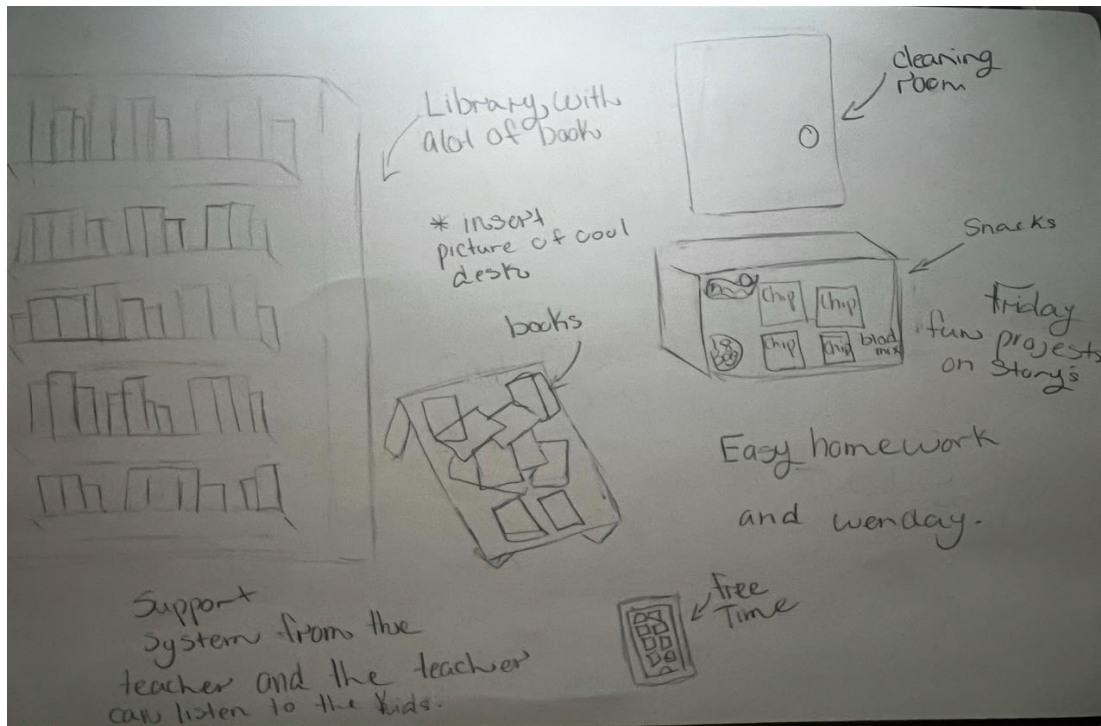 Library with
alot of book
* insert
picture of cool
desk
books
cleaning
room
Snacks
Chip
Chip
Chip
Chip
Friday
fun projests
on Story's
Easy homework
and wenday.
free
Time
Support
system from the
teacher and the teacher
can listen to the kids.